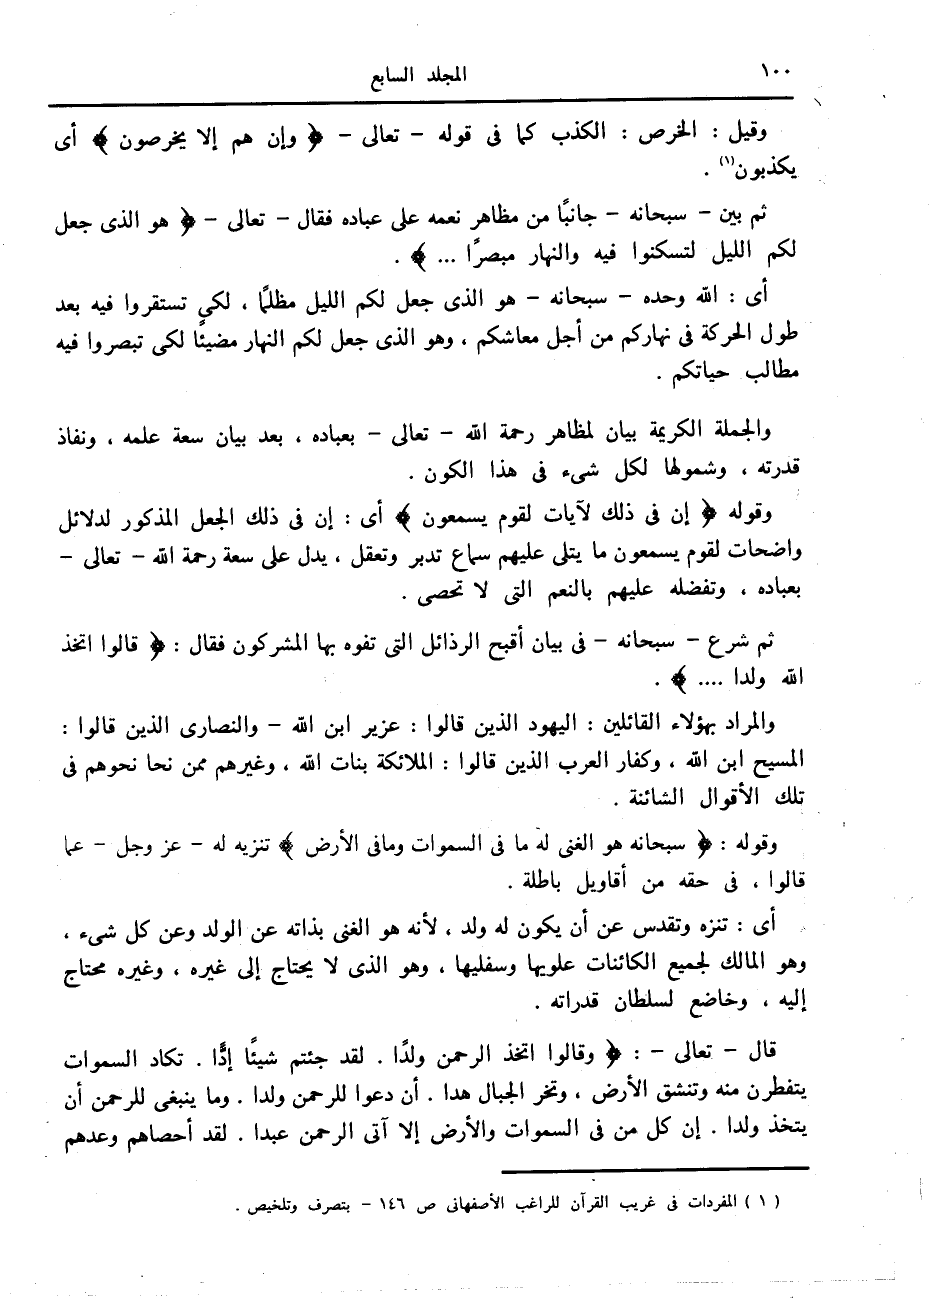 ١٠٠
المجلد السابع
وقيل : الخرص : الكذب كما فى قوله - تعالى - ﴿ وإن هم إلا يخرصون ﴾ أى
يكذبون(١) .
ثم بين - سبحانه - جانبًا من مظاهر نعمه على عباده فقال - تعالى - ﴿ هو الذى جعل
لكم الليل لتسكنوا فيه والنهار مبصرًا ... ﴾ .
أى : الله وحده - سبحانه - هو الذى جعل لكم الليل مظلمًا ، لكى تستقروا فيه بعد
طول الحركة فى نهاركم من أجل معاشكم ، وهو الذى جعل لكم النهار مضيئًا لكى تبصروا فيه
مطالب حياتكم .
والجملة الكريمة بيان لمظاهر رحمة الله - تعالى - بعباده ، بعد بيان سعة علمه ، ونفاذ
قدرته ، وشمولها لكل شىء فى هذا الكون .
وقوله ﴿ إن فى ذلك لآيات لقوم يسمعون ﴾ أى : إن فى ذلك الجعل المذكور لدلائل
واضحات لقوم يسمعون ما يتلى عليهم سماع تدبر وتعقل ، يدل على سعة رحمة الله - تعالى -
بعباده ، وتفضله عليهم بالنعم التى لا تحصى .
ثم شرع - سبحانه - فى بيان أقبح الرذائل التى تفوه بها المشركون فقال : ﴿ قالوا اتخذ
الله ولدا .... ﴾ .
والمراد بهؤلاء القائلين : اليهود الذين قالوا : عزير ابن الله - والنصارى الذين قالوا :
المسيح ابن الله ، وكفار العرب الذين قالوا : الملائكة بنات الله ، وغيرهم ممن نحا نحوهم فى
تلك الأقوال الشائنة .
وقوله : ﴿ سبحانه هو الغنى له ما فى السموات ومافى الأرض ﴾ تنزيه له - عز وجل - عما
قالوا ، فى حقه من أقاويل باطلة .
أى : تنزه وتقدس عن أن يكون له ولد ، لأنه هو الغنى بذاته عن الولد وعن كل شىء ،
وهو المالك لجميع الكائنات علويها وسفليها ، وهو الذى لا يحتاج إلى غيره ، وغيره محتاج
إليه ، وخاضع لسلطان قدراته .
قال - تعالى - : ﴿ وقالوا اتخذ الرحمن ولدًا . لقد جئتم شيئًا إدًّا . تكاد السموات
يتفطرن منه وتنشق الأرض ، وتخر الجبال هدا . أن دعوا للرحمن ولدا . وما ينبغى للرحمن أن
يتخذ ولدا . إن كل من فى السموات والأرض إلا آتى الرحمن عبدا . لقد أحصاهم وعدهم
( ١ ) المفردات فى غريب القرآن للراغب الأصفهانى ص ١٤٦ - بتصرف وتلخيص .